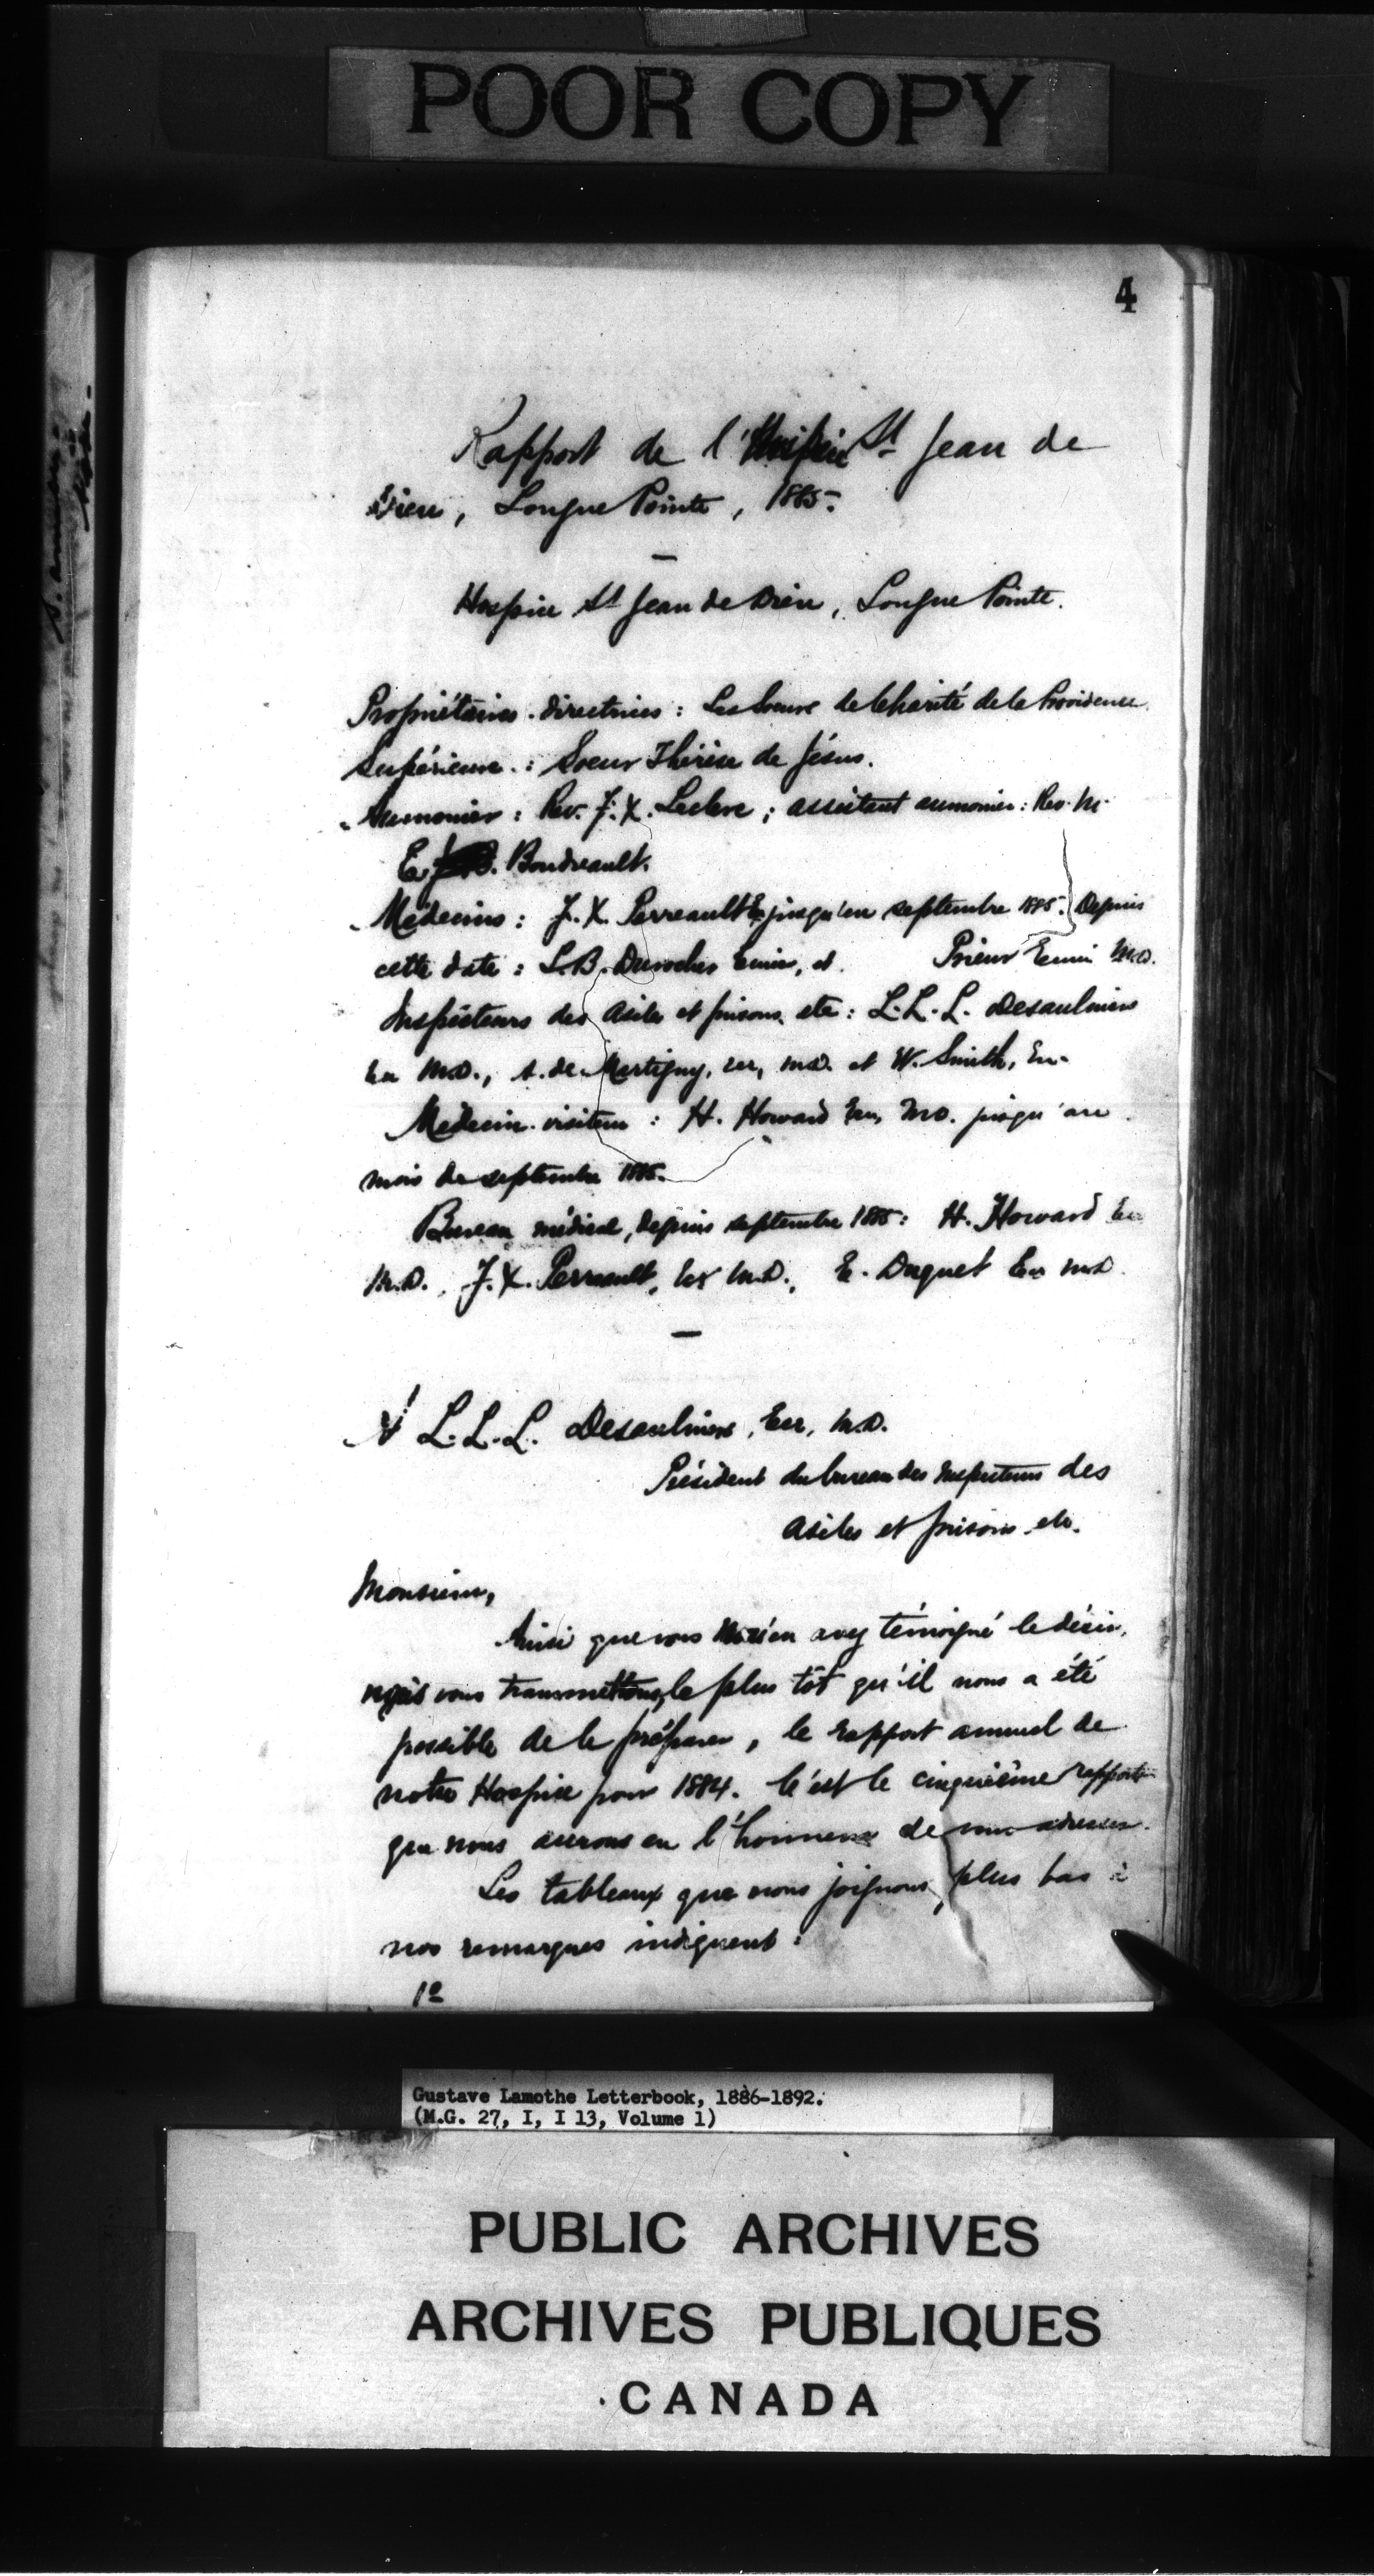 POOR COPY
4
Rapport de l'Hospice St Jean de
Dieu, Longue Pointe, 1885.
Hospice St Jean de Dieu, Longue Pointe.
Propriétaires-directrices : Les Soeurs de Charité de la Providence.
Supérieure : Soeur Thérèse de Jésus.
Aumonier : Rev. F. X. Leclerc ; assistant aumonier : Rev. M.
E. Boudreault.
Médecins : F. X. Perreault Ecr jusqu'en septembre 1885. Depuis
cette date : L. B. Durocher Ecuier, et Prieur Ecuier M.D.
Inspecteurs des asiles et prisons etc : L. L. L. Desaulniers
Ecr M.D., A. de Martigny, ecr, M.D. et W. Smith, Ecr.
Médecin-visiteur : H. Howard Ecr, M.D. jusqu'au
mois de septembre 1885.
Bureau médical, depuis septembre 1885 : H. Howard Ecr
M.D., F. X. Perreault, Ecr M.D., E. Duquet Ecr M.D.
A L. L. L. Desaulniers, Ecr, M.D.
Président du bureau des Inspecteurs des
asiles et prisons etc.
Monsieur,
Ainsi que vous en avez témoigné le désir,
nous vous transmettons, le plus tôt qu'il nous a été
possible de le préparer, le rapport annuel de
notre Hospice pour 1884. C'est le cinquième rapport
que nous aurons eu l'honneur de vous adresser.
Les tableaux que nous joignons, plus bas à
nos remarques indiquent :
1o
Gustave Lamothe Letterbook, 1886-1892.
(M.G. 27, I, I 13, Volume 1)
PUBLIC ARCHIVES
ARCHIVES PUBLIQUES
CANADA